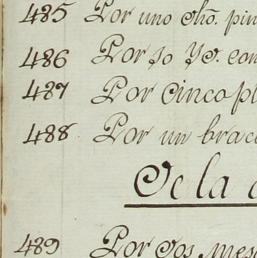 485 Por uno dho. pin
486 Por so Yo. con
487 Por Cinco pl
488 Por un brace
De la
489 Por dos mesa